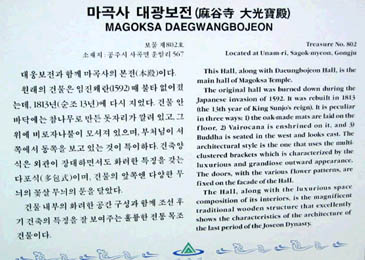 마곡사 대광보전(麻谷寺 大光寶殿)
MAGOKSA DAEGWANGBOJEON
보물 제802호
소재지: 공주시 사곡면 운암리 567
대웅보전과 함께 마곡사의 본전(本殿)이다.
원래의 건물은 임진왜란(1592) 때 불타 없어졌
는데, 1813년(순조 13년)에 다시 지었다. 건물 안
바닥에는 참나무로 만든 돗자리가 깔려 있고, 그
위에 비로자나불이 모셔져 있으며, 부처님이 서
쪽에서 동쪽을 보고 있는 것이 특이하다. 건축양
식은 외관이 장대하면서도 화려한 특징을 갖는
다포식(多包式)이며, 건물의 앞쪽엔 다양한 무
늬의 꽃살 무늬의 문을 달았다.
건물 내부의 화려한 공간 구성과 함께 조선 후
기 건축의 특징을 잘 보여주는 훌륭한 전통 목조
건물이다.
Treasure No. 802
Located at Unam-ri, Sagok-myeon, Gongju
This Hall, along with Daeungbojeon Hall, is the
main hall of Magoksa Temple.
The original hall was burned down during the
Japanese invasion of 1592. It was rebuilt in 1813
(the 13th year of King Sunjo's reign). It is peculiar
in three ways: 1) the oak-made mats are laid on the
floor, 2) Vairocana is enshrined on it, and 3)
Buddha is seated in the west and looks east. The
architectural style is the one that uses the multi-
clustered brackets which is characterized by the
luxurious and grandiose outward appearance.
The doors, with the various flower patterns, are
fixed on the facade of the Hall.
The Hall, along with the luxurious space
composition of its interiors, is the magnificent
traditional wooden structure that excellently
shows the characteristics of the architecture of
the last period of the Joseon Dynasty.